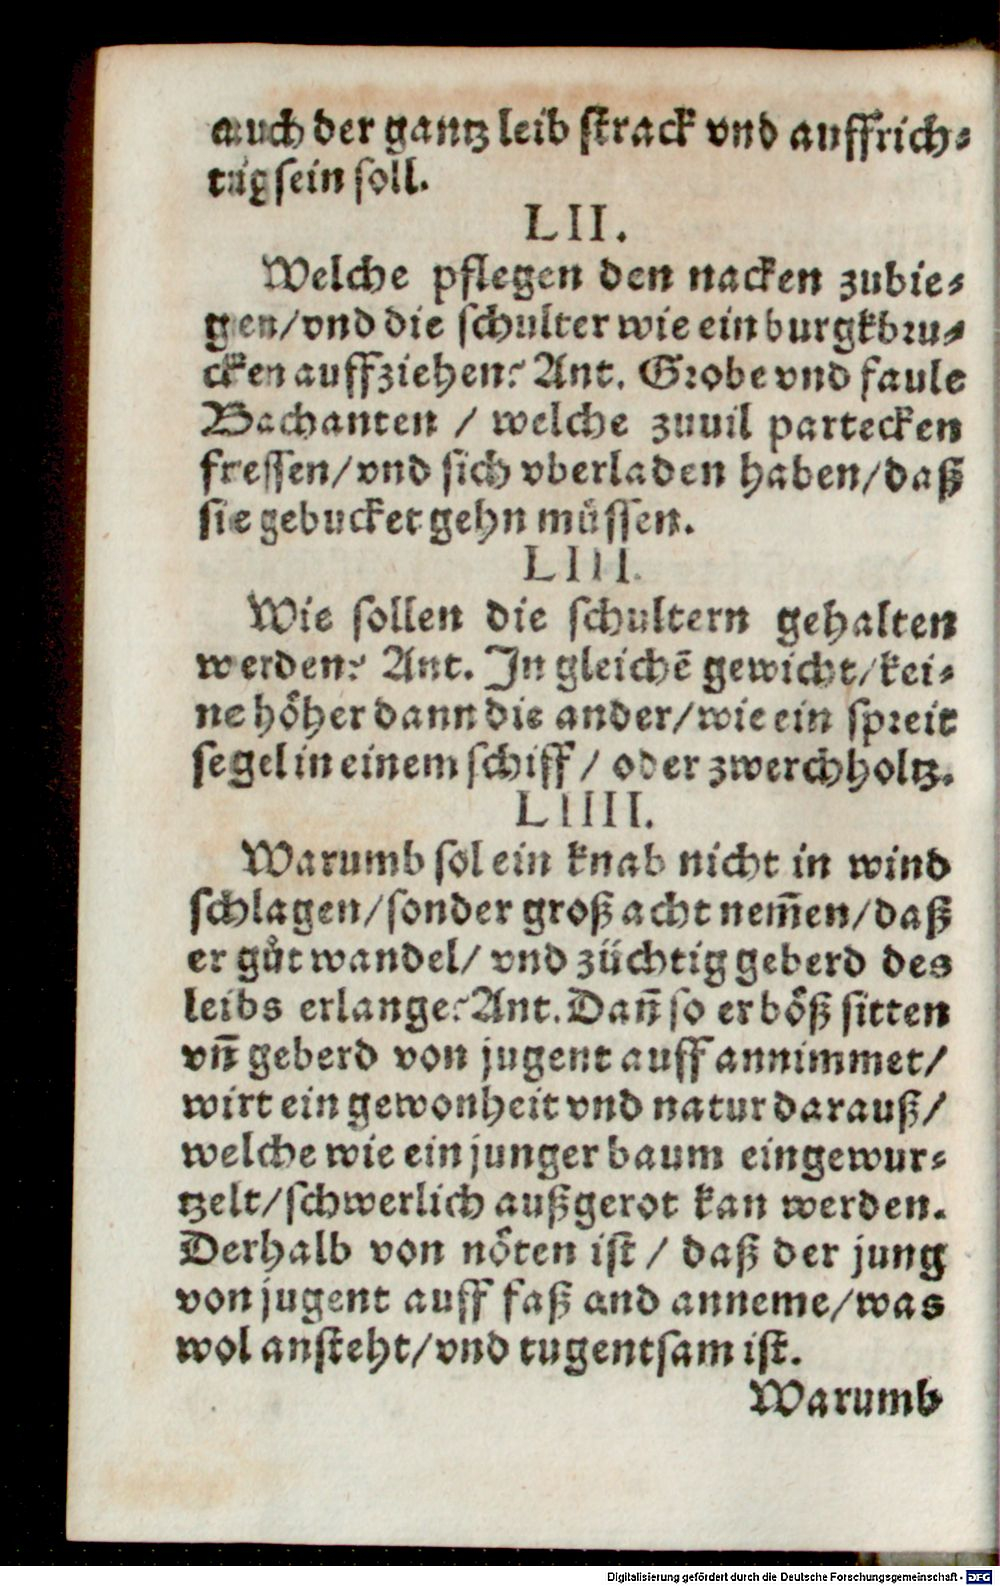 auch der gantz leib strack vnd auffrich⸗
tig sein soll.
LII.
Welche pflegen den nacken zubie⸗
gen/vnd die schulter wie ein burgkbru⸗
cken auffziehen? Ant. Grobe vnd faule
Bachanten / welche zuuil partecken
fressen/vnd sich vberladen haben/daß
sie gebucket gehn müssen.
LIII.
Wie sollen die schultern gehalten
werden? Ant. In gleichē gewicht/kei⸗
ne höher dann die ander/wie ein spreit
segel in einem schiff / oder zwerchholtz.
LIIII.
Warumb sol ein knab nicht in wind
schlagen/sonder groß acht nem̄en/daß
er gůt wandel/ vnd züchtig geberd des
leibs erlange? Ant. Dañ so er böß sitten
vñ geberd von jugent auff annimmet/
wirt ein gewonheit vnd natur darauß/
welche wie ein junger baum eingewur⸗
tzelt/schwerlich außgerot kan werden.
Derhalb von nöten ist / daß der jung
von jugent auff faß and anneme/was
wol ansteht/vnd tugentsam ist.
Warumb
Digitalisierung gefördert durch die Deutsche Forschungsgemeinschaft - DFG